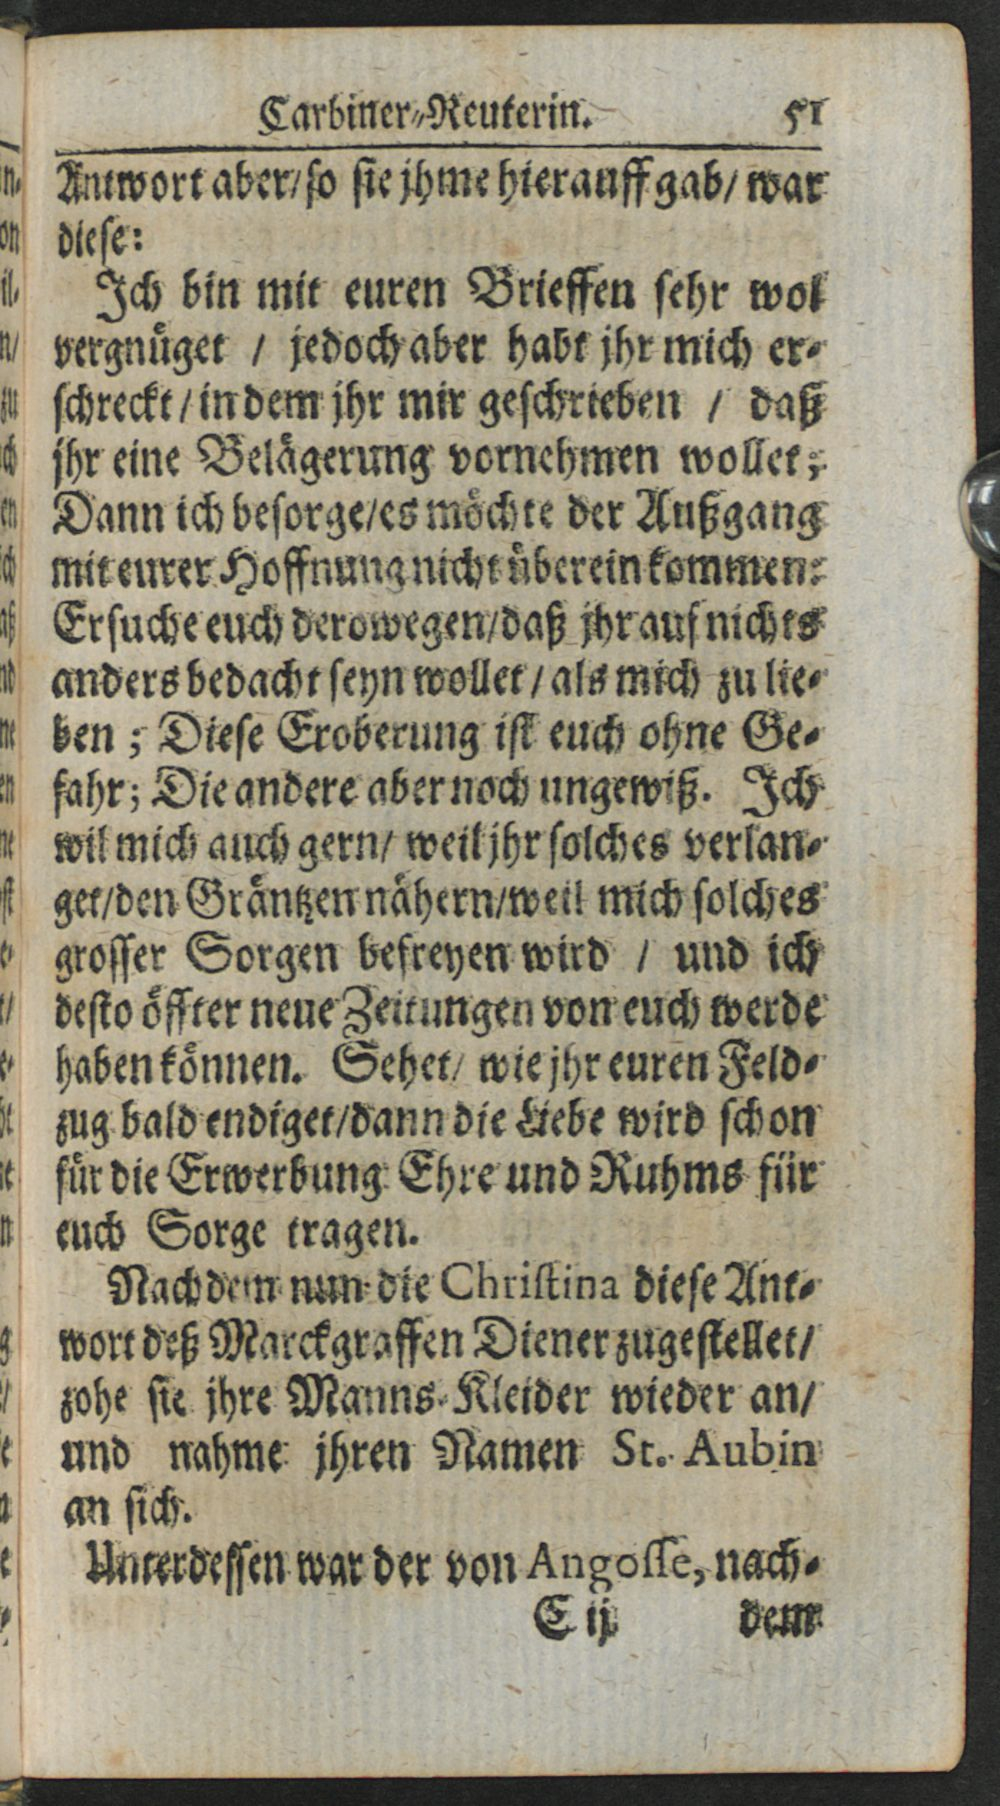 Carbiner-Reuterin. 51
Antwort aber/ so sie jhme hierauff gab/ war
diese:
Ich bin mit euren Brieffen sehr wol
vergnüget / jedoch aber habt jhr mich er-
schreckt / in dem jhr mir geschrieben / daß
jhr eine Belägerung vornehmen wollet;
Dann ich besorge/ es möchte der Außgang
mit eurer Hoffnung nicht überein kommen:
Ersuche euch derowegen/ daß jhr auf nichts
anders bedacht seyn wollet / als mich zu lie-
ben ; Diese Eroberung ist euch ohne Ge-
fahr; Die andere aber noch ungewiß. Ich
wil mich auch gern/ weil jhr solches verlan-
get/ den Gräntzen nähern/ weil mich solches
grosser Sorgen befreyen wird / und ich
desto öffter neue Zeitungen von euch werde
haben können. Sehet/ wie jhr euren Feld-
zug bald endiget/ dann die Liebe wird schon
für die Erwerbung Ehre und Ruhms für
euch Sorge tragen.
Nachdem nun die Christina diese Ant-
wort deß Marckgraffen Diener zugestellet/
zohe sie jhre Manns-Kleider wieder an/
und nahme jhren Namen St. Aubin
an sich.
Unterdessen war der von Angosse, nach-
E ij dem